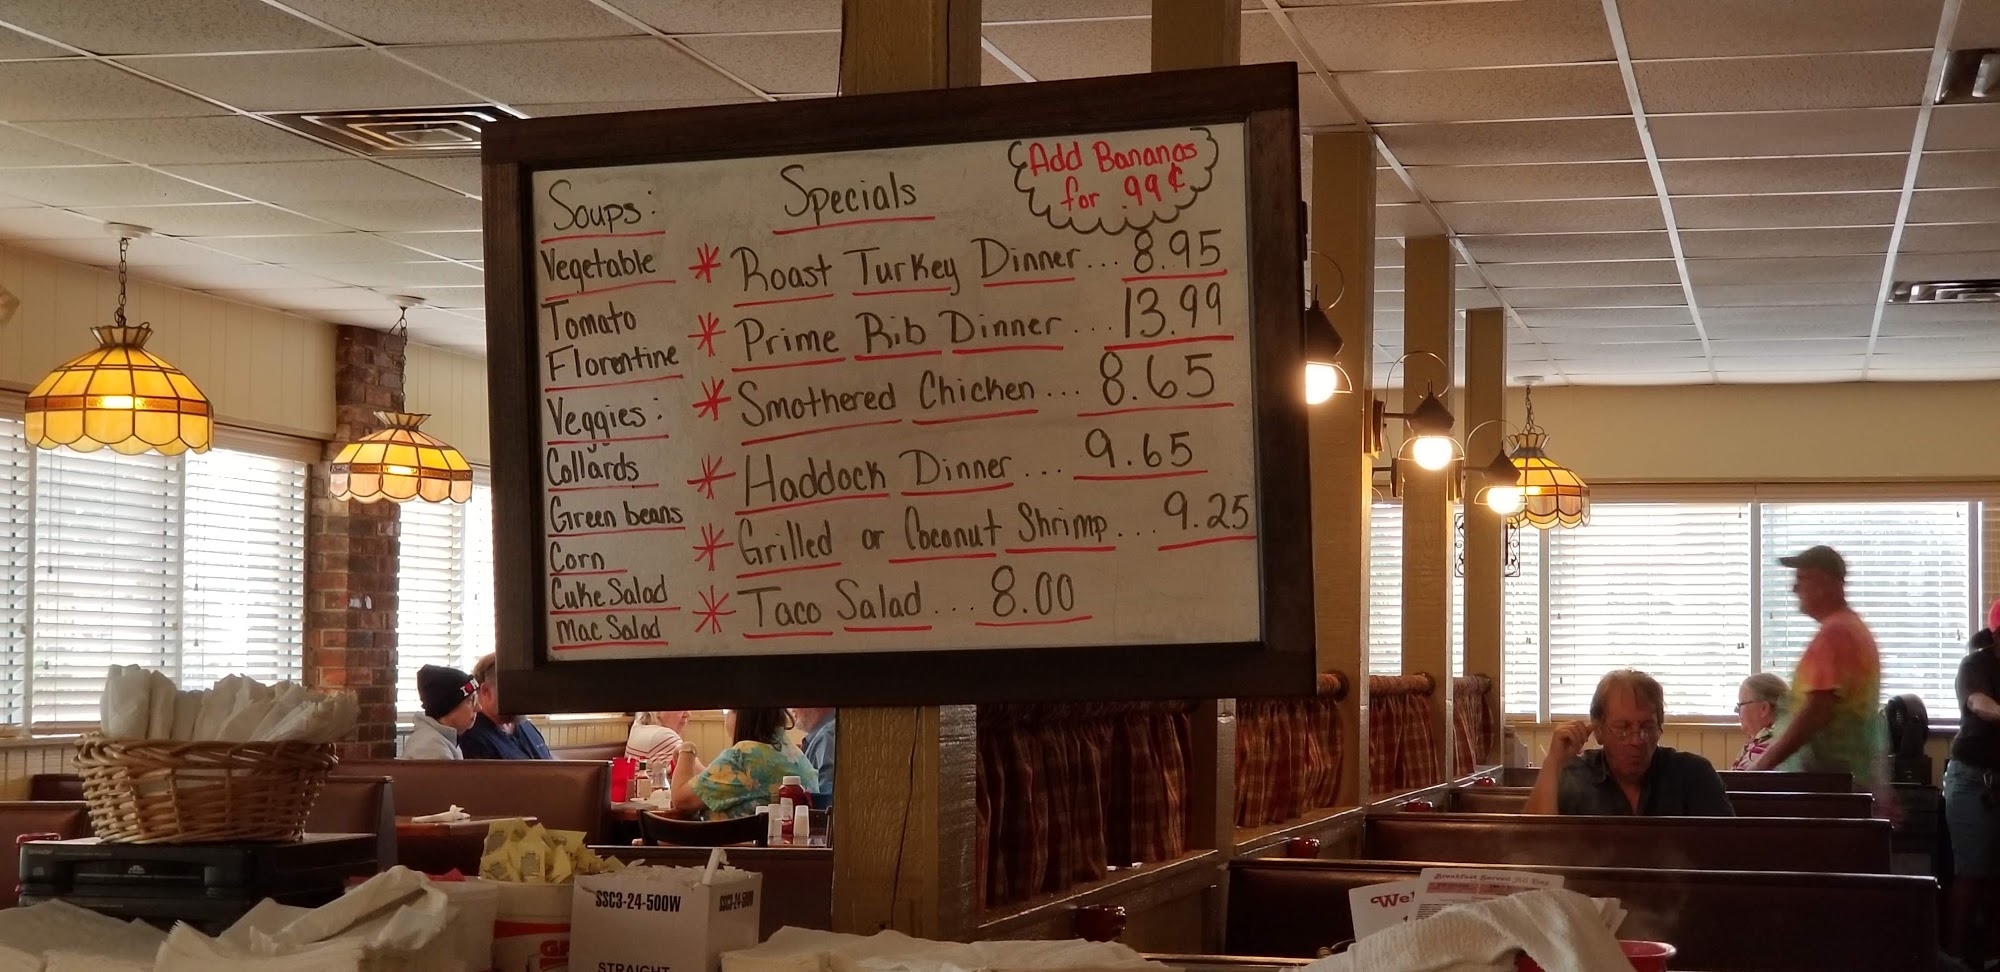 Soups:
Vegetable
Tomato
Florentine
Veggies:
Collards
Green beans
Corn
Cuke Salad
Mac Salad
Specials
Add Bananas
for .99¢
* Roast Turkey Dinner... 8.95
* Prime Rib Dinner... 13.99
* Smothered Chicken... 8.65
* Haddock Dinner... 9.65
* Grilled or Coconut Shrimp... 9.25
* Taco Salad... 8.00
SSC3-24-500W
STRAIGHT
SSC3-24-500W
Breakfast Served All Day